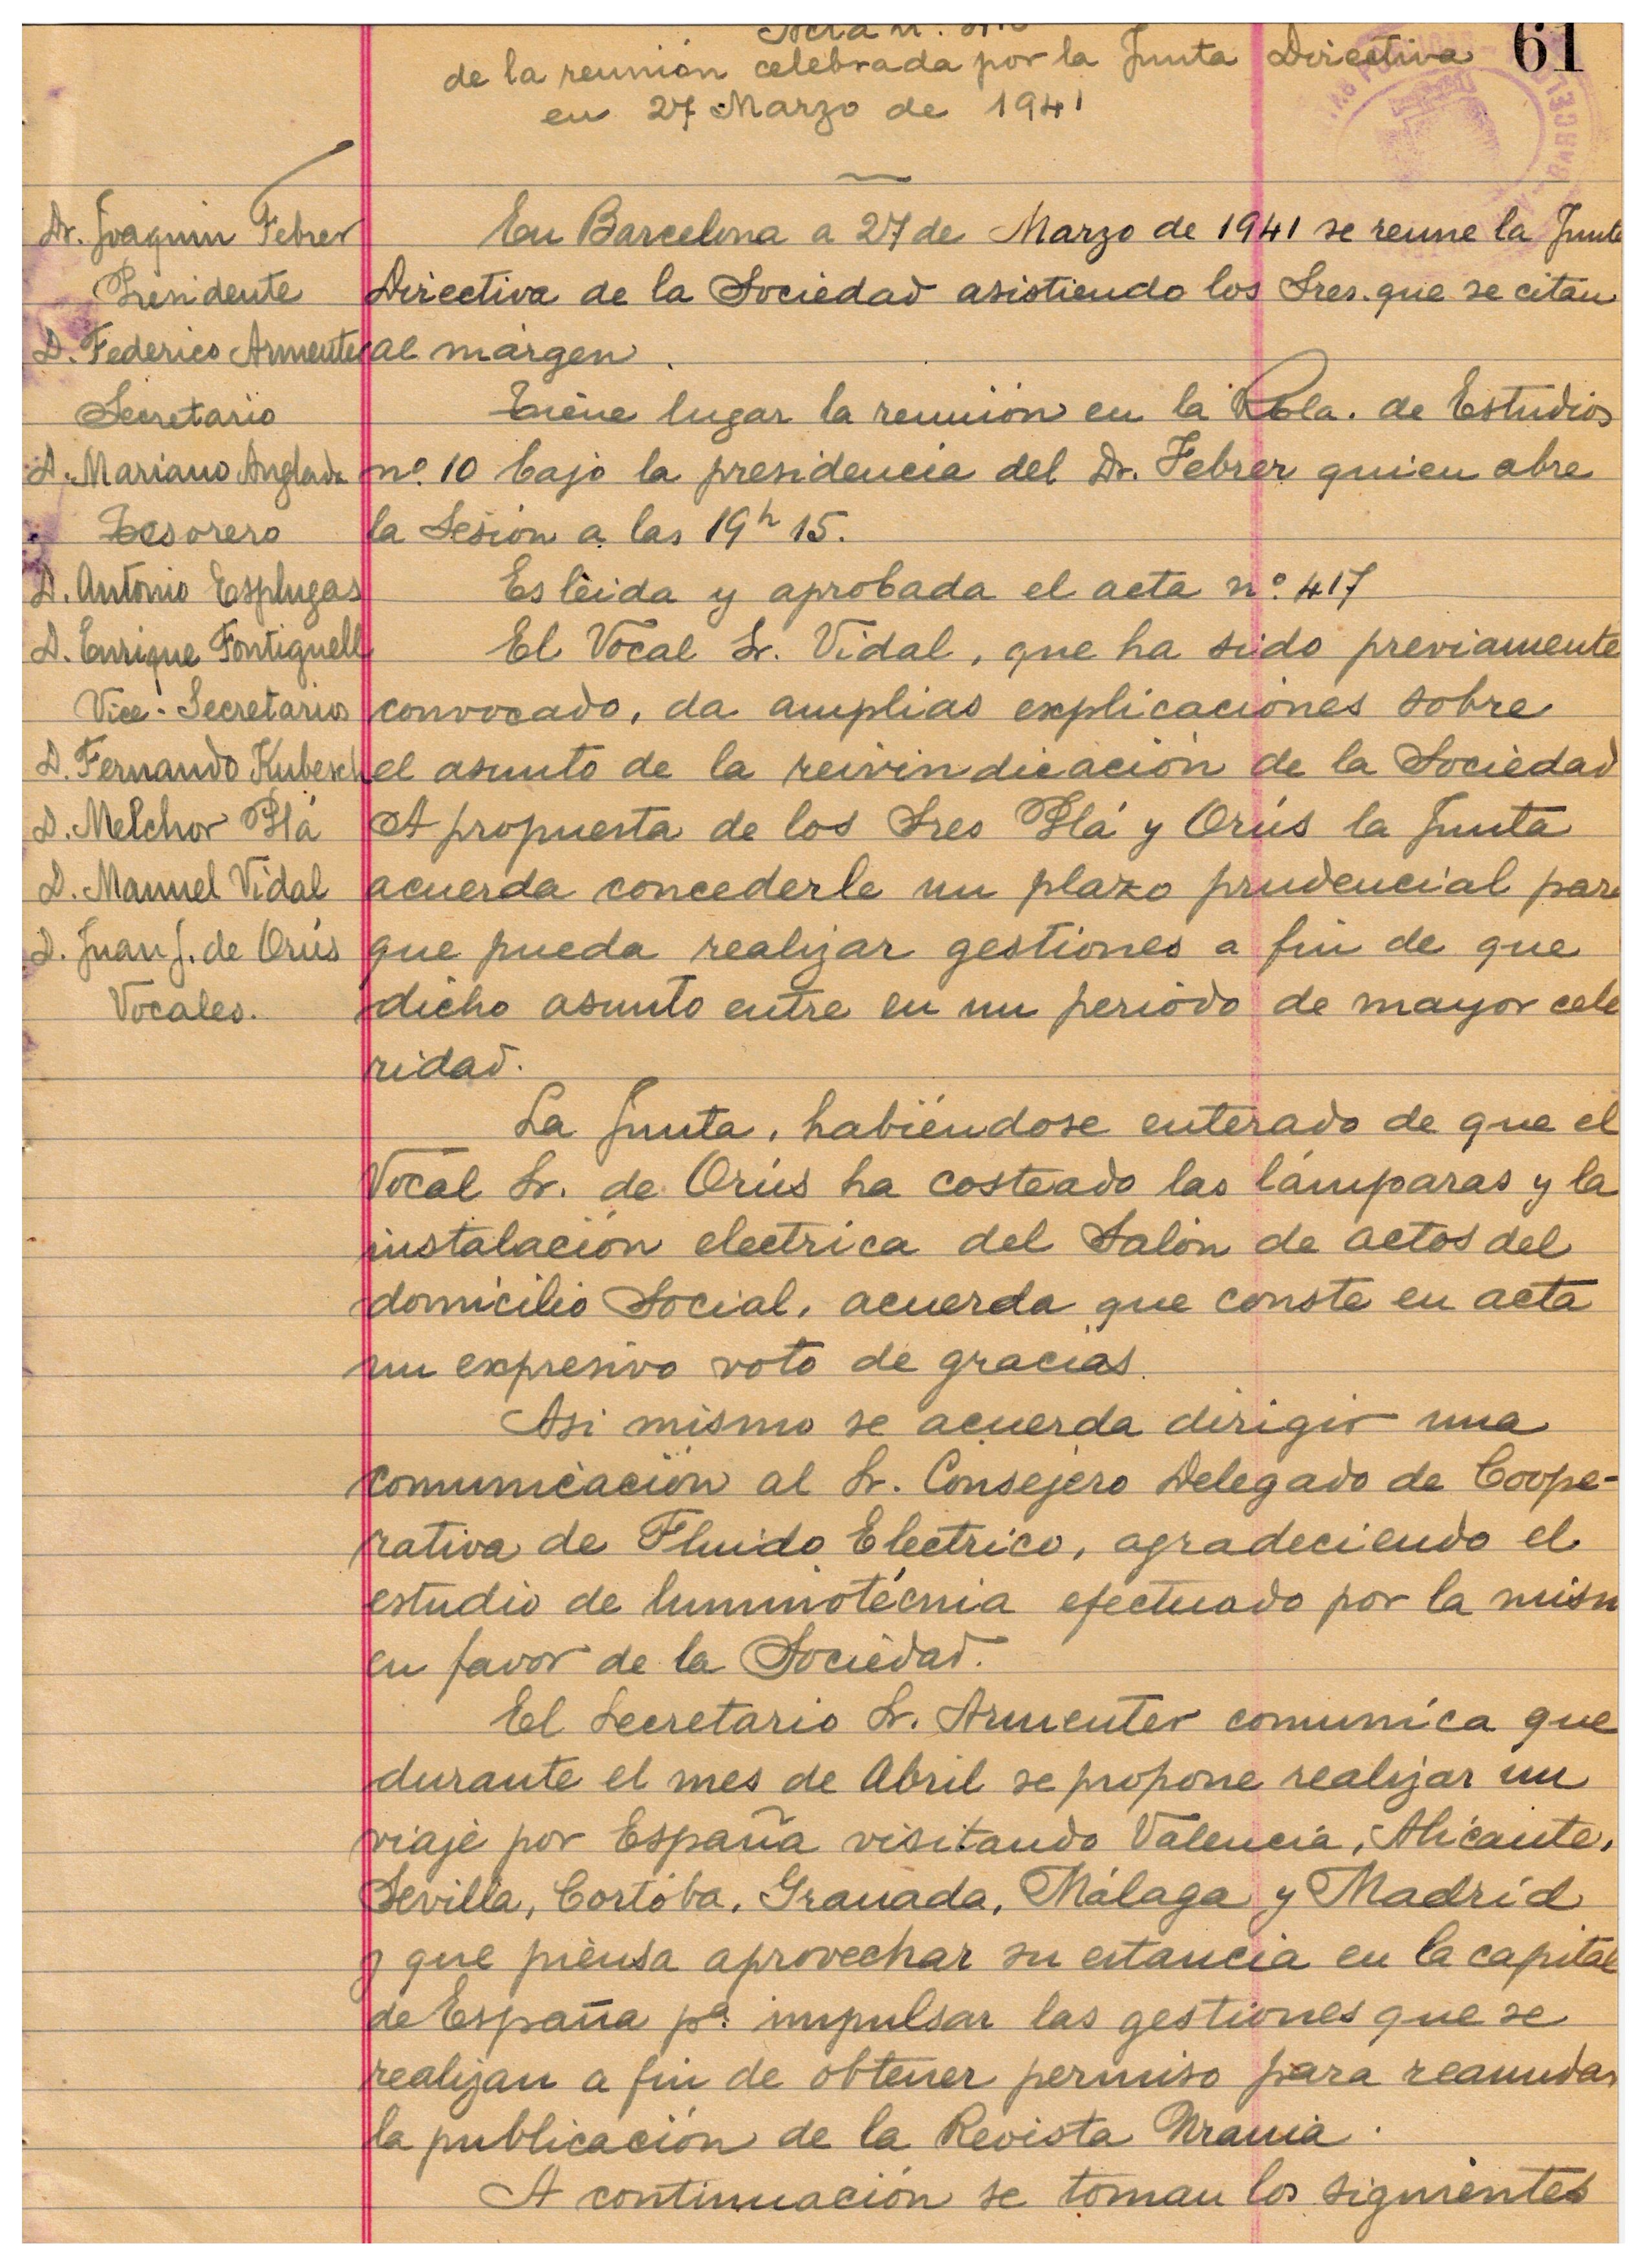 61
de la reunión celebrada por la Junta Directiva
en 27 Marzo de 1941
Dr. Joaquín Febrer
Presidente
D. Federico Armenter
Secretario
D. Mariano Anglada
Tesorero
D. Antonio Esplugas
D. Enrique Fontiguell
Vice-Secretario
D. Fernando Kubesch
D. Melchor Plá
D. Manuel Vidal
D. Juan J. de Orús
Vocales.
En Barcelona a 27 de Marzo de 1941 se reune la Junta
Directiva de la Sociedad asistiendo los Sres. que se citan
al márgen.
Tiene lugar la reunión en la Rbla. de Estudios
nº 10 bajo la presidencia del Dr. Febrer quien abre
la Sesión a las 19h 15.
Es leida y aprobada el acta nº 417
El Vocal Sr. Vidal, que ha sido previamente
convocado, da amplias explicaciones sobre
el asunto de la reivindicación de la Sociedad
A propuesta de los Sres Plá y Orús la Junta
acuerda concederle un plazo prudencial para
que pueda realizar gestiones a fin de que
dicho asunto entre en un período de mayor cele
ridad.
La Junta, habiéndose enterado de que el
Vocal Sr. de Orús ha costeado las lámparas y la
instalación electrica del Salón de actos del
domicilio Social, acuerda que conste en acta
un expresivo voto de gracias.
Asi mismo se acuerda dirigir una
comunicación al Sr. Consejero Delegado de Coope-
rativa de Fluido Electrico, agradeciendo el
estudio de luminotécnia efectuado por la mism
en favor de la Sociedad.
El Secretario Sr. Armenter comunica que
durante el mes de Abril se propone realizar un
viaje por España visitando Valencia, Alicante,
Sevilla, Cortóba, Granada, Málaga y Madrid
y que piensa aprovechar su estancia en la capital
de España pª. impulsar las gestiones que se
realizan a fin de obtener permiso para reanudar
la publicación de la Revista Urania.
A continuación se toman los siguientes